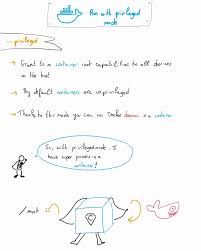 Run with privileged
mode
--privileged
→ Grant to a container root capabilities to all devices
on the host
→ By default containers are unprivileged
→ Thanks to this mode you can run Docker daemon in a container
So, with privileged mode, I
have super powers in a
container!
/ mnt